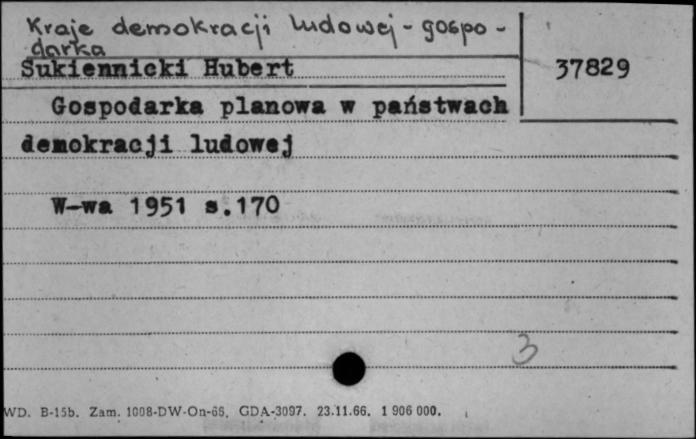 Kraje demokracji ludowej - gospo-
darka
Sukiennicki Hubert
37829
Gospodarka planowa w państwach
demokracji ludowej
W-wa 1951 s.170
3
WD. B-15b. Zam. 1008-DW-On-66. GDA-3097. 23.11.66. 1 906 000.